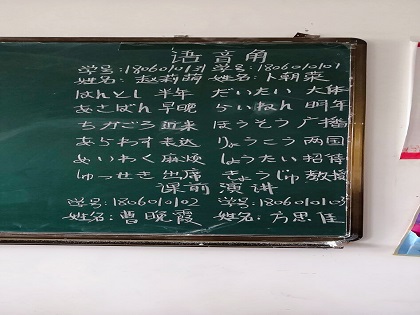 语音角
学号:1806010131 学号:1806010101
姓名:赵莉萌 姓名:卜朝菜
はんとし 半年 だいたい 大体
あさばん 早晚 らいねん 明年
ちかごろ 近来 ほうそう 广播
あらわす 表达 りょうこう 两国
めいわく 麻烦 しょうたい 招待
しゅっせき 出席 きょうじゅ 教授
课前演讲
学号:1806010102 学号:1806010103
姓名:曹晚霞 姓名:方思佳